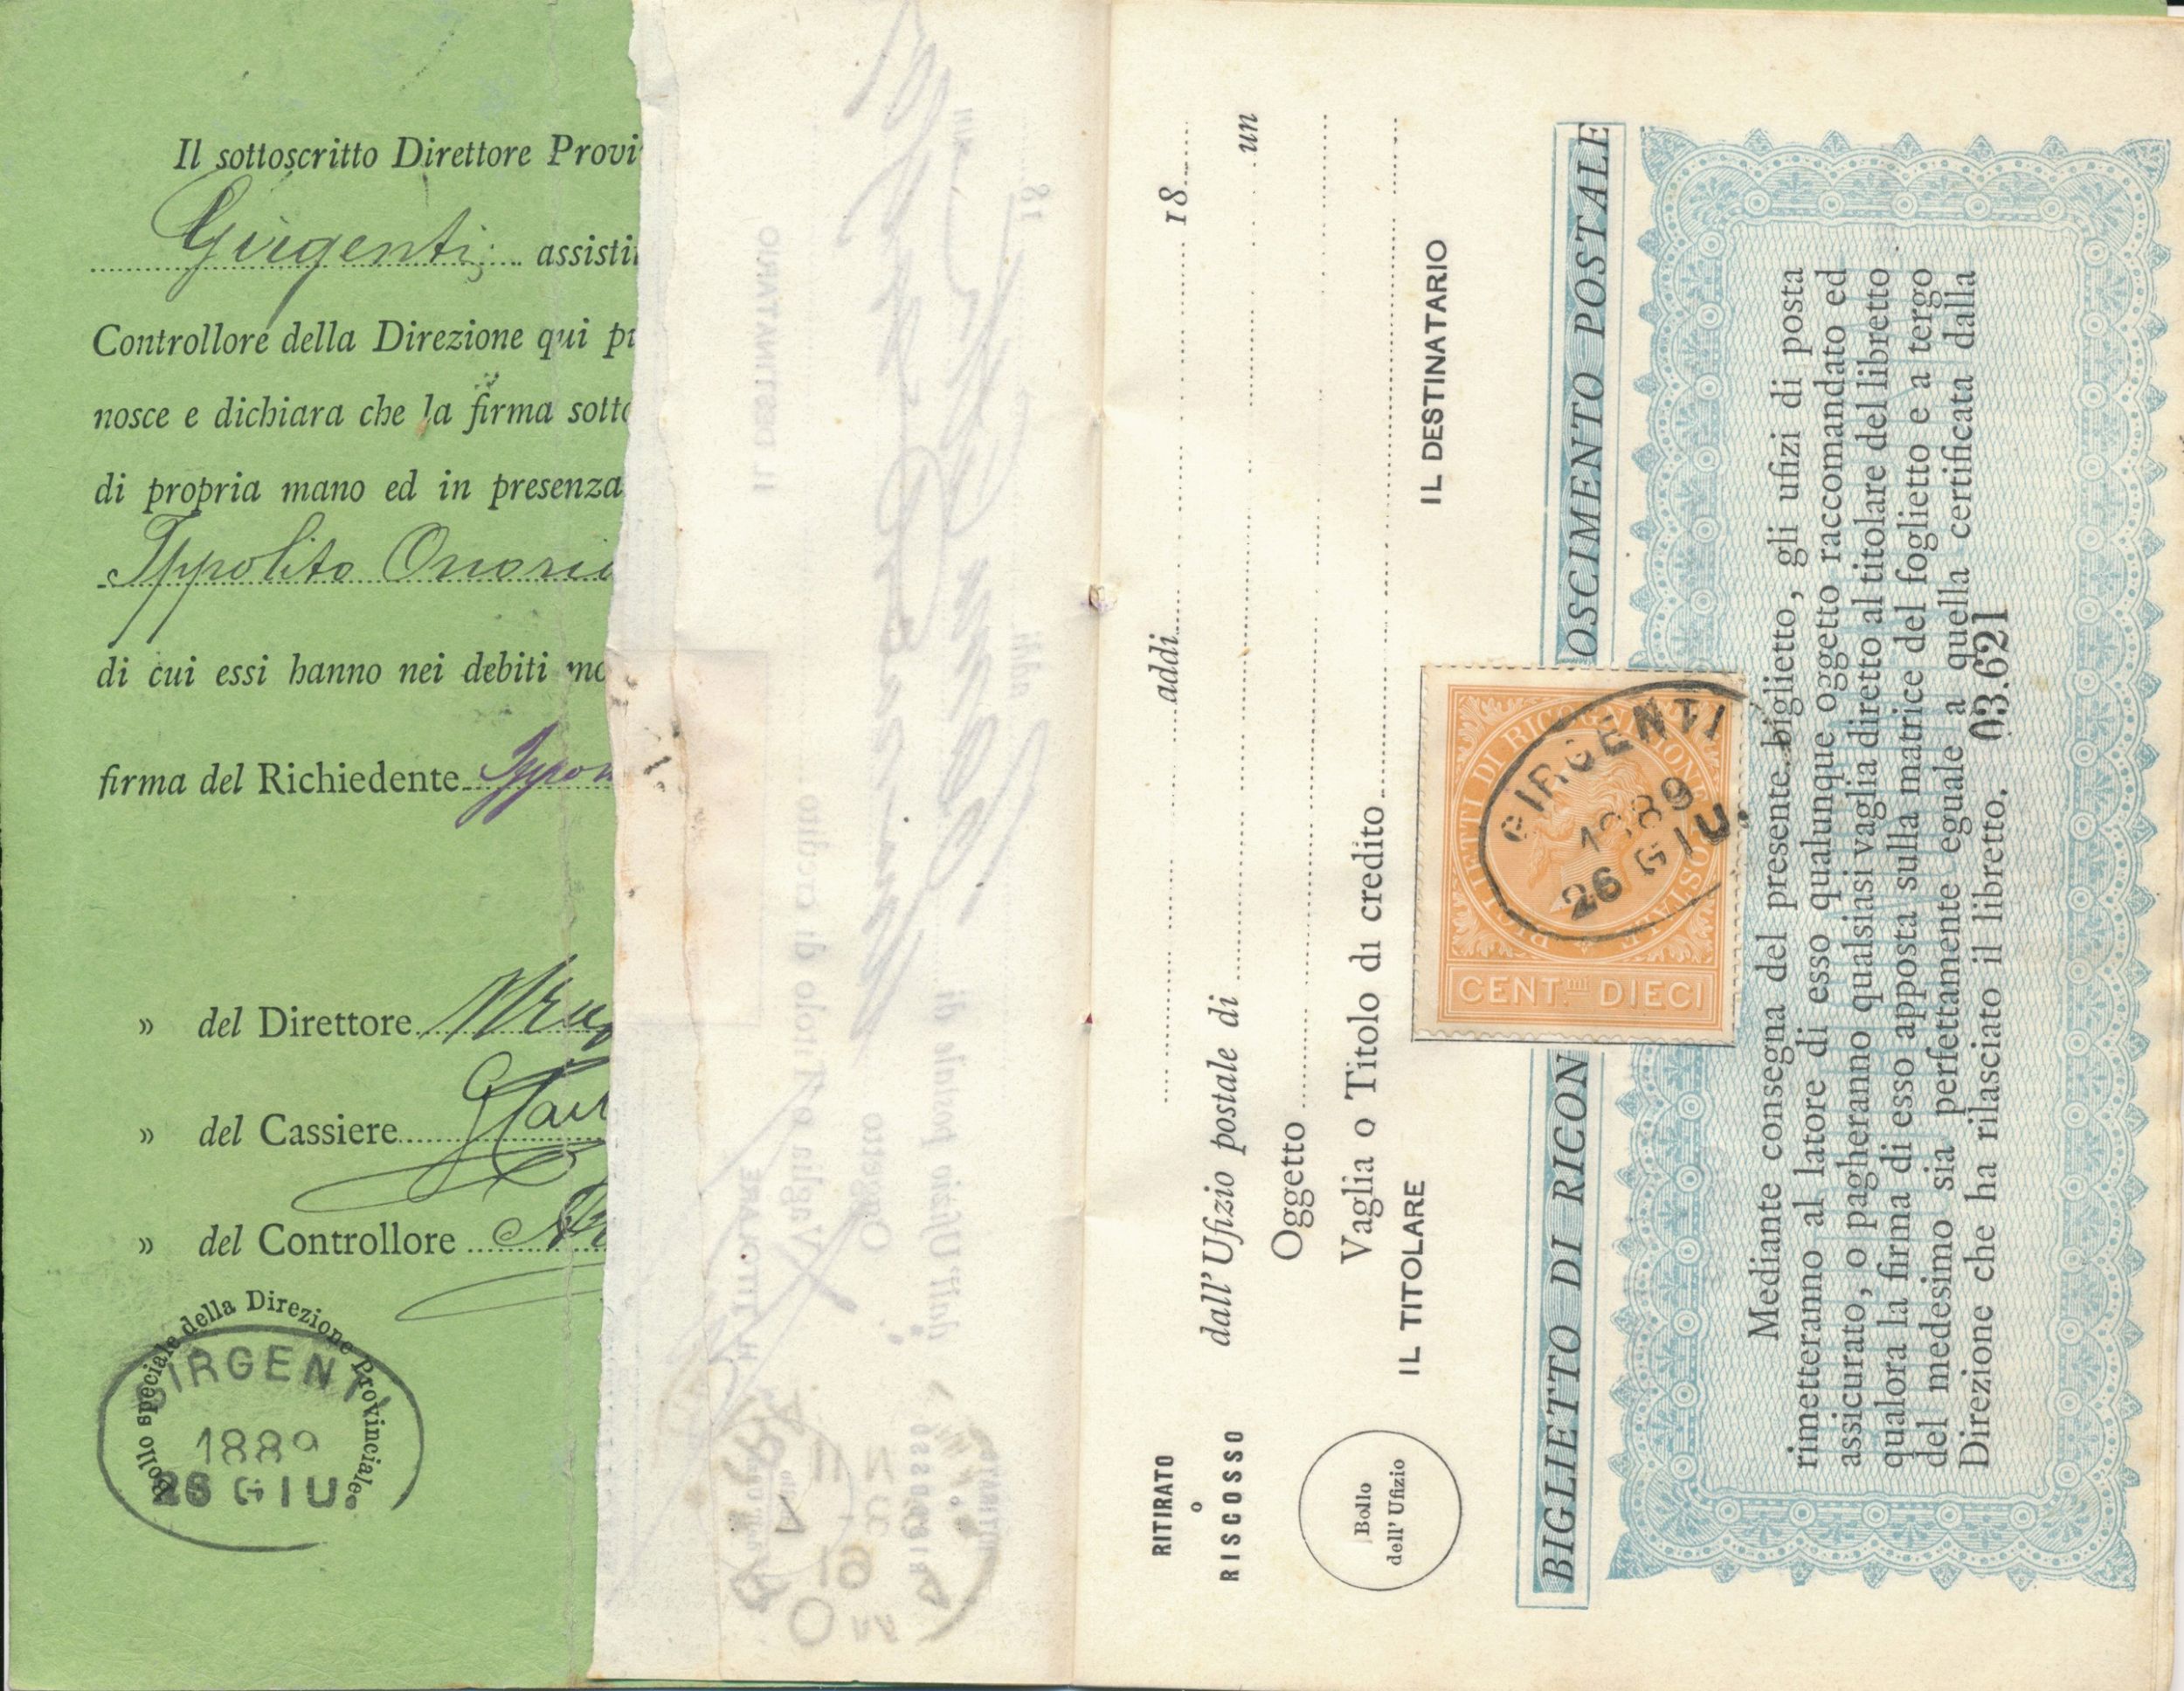 Il sottoscritto Direttore Provi
Girgenti, assisti
Controllore della Direzione qui pr
nosce e dichiara che la firma sotto
di propria mano ed in presenza
Ippolito Onorio
di cui essi hanno nei debiti mo
firma del Richiedente
» del Direttore
» del Cassiere
» del Controllore
Bollo speciale della Direzione Provinciale
GIRGENTI
1889
26 GIU.
IL DESTINATARIO
IL TITOLARE
Vaglia o Titolo di credito
Oggetto
dall'Ufizio postale di
un
addì
18
RISCOSSO
RITIRATO
RITIRATO
o
RISCOSSO
addì 18
dall'Ufizio postale di un
Oggetto
Vaglia o Titolo di credito
IL TITOLARE IL DESTINATARIO
Bollo
dell'Ufizio
BIGLIETTO DI RICON OSCIMENTO POSTALE
BIGLIETTI DI RICOGNIZIONE POSTALE
CENT.MI DIECI
GIRGENTI
1889
26 GIU.
Mediante consegna del presente biglietto, gli ufizi di posta
rimetteranno al latore di esso qualunque oggetto raccomandato ed
assicurato, o pagheranno qualsiasi vaglia diretto al titolare del libretto
qualora la firma di esso apposta sulla matrice del foglietto e a tergo
del medesimo sia perfettamente eguale a quella certificata dalla
Direzione che ha rilasciato il libretto. 03.621